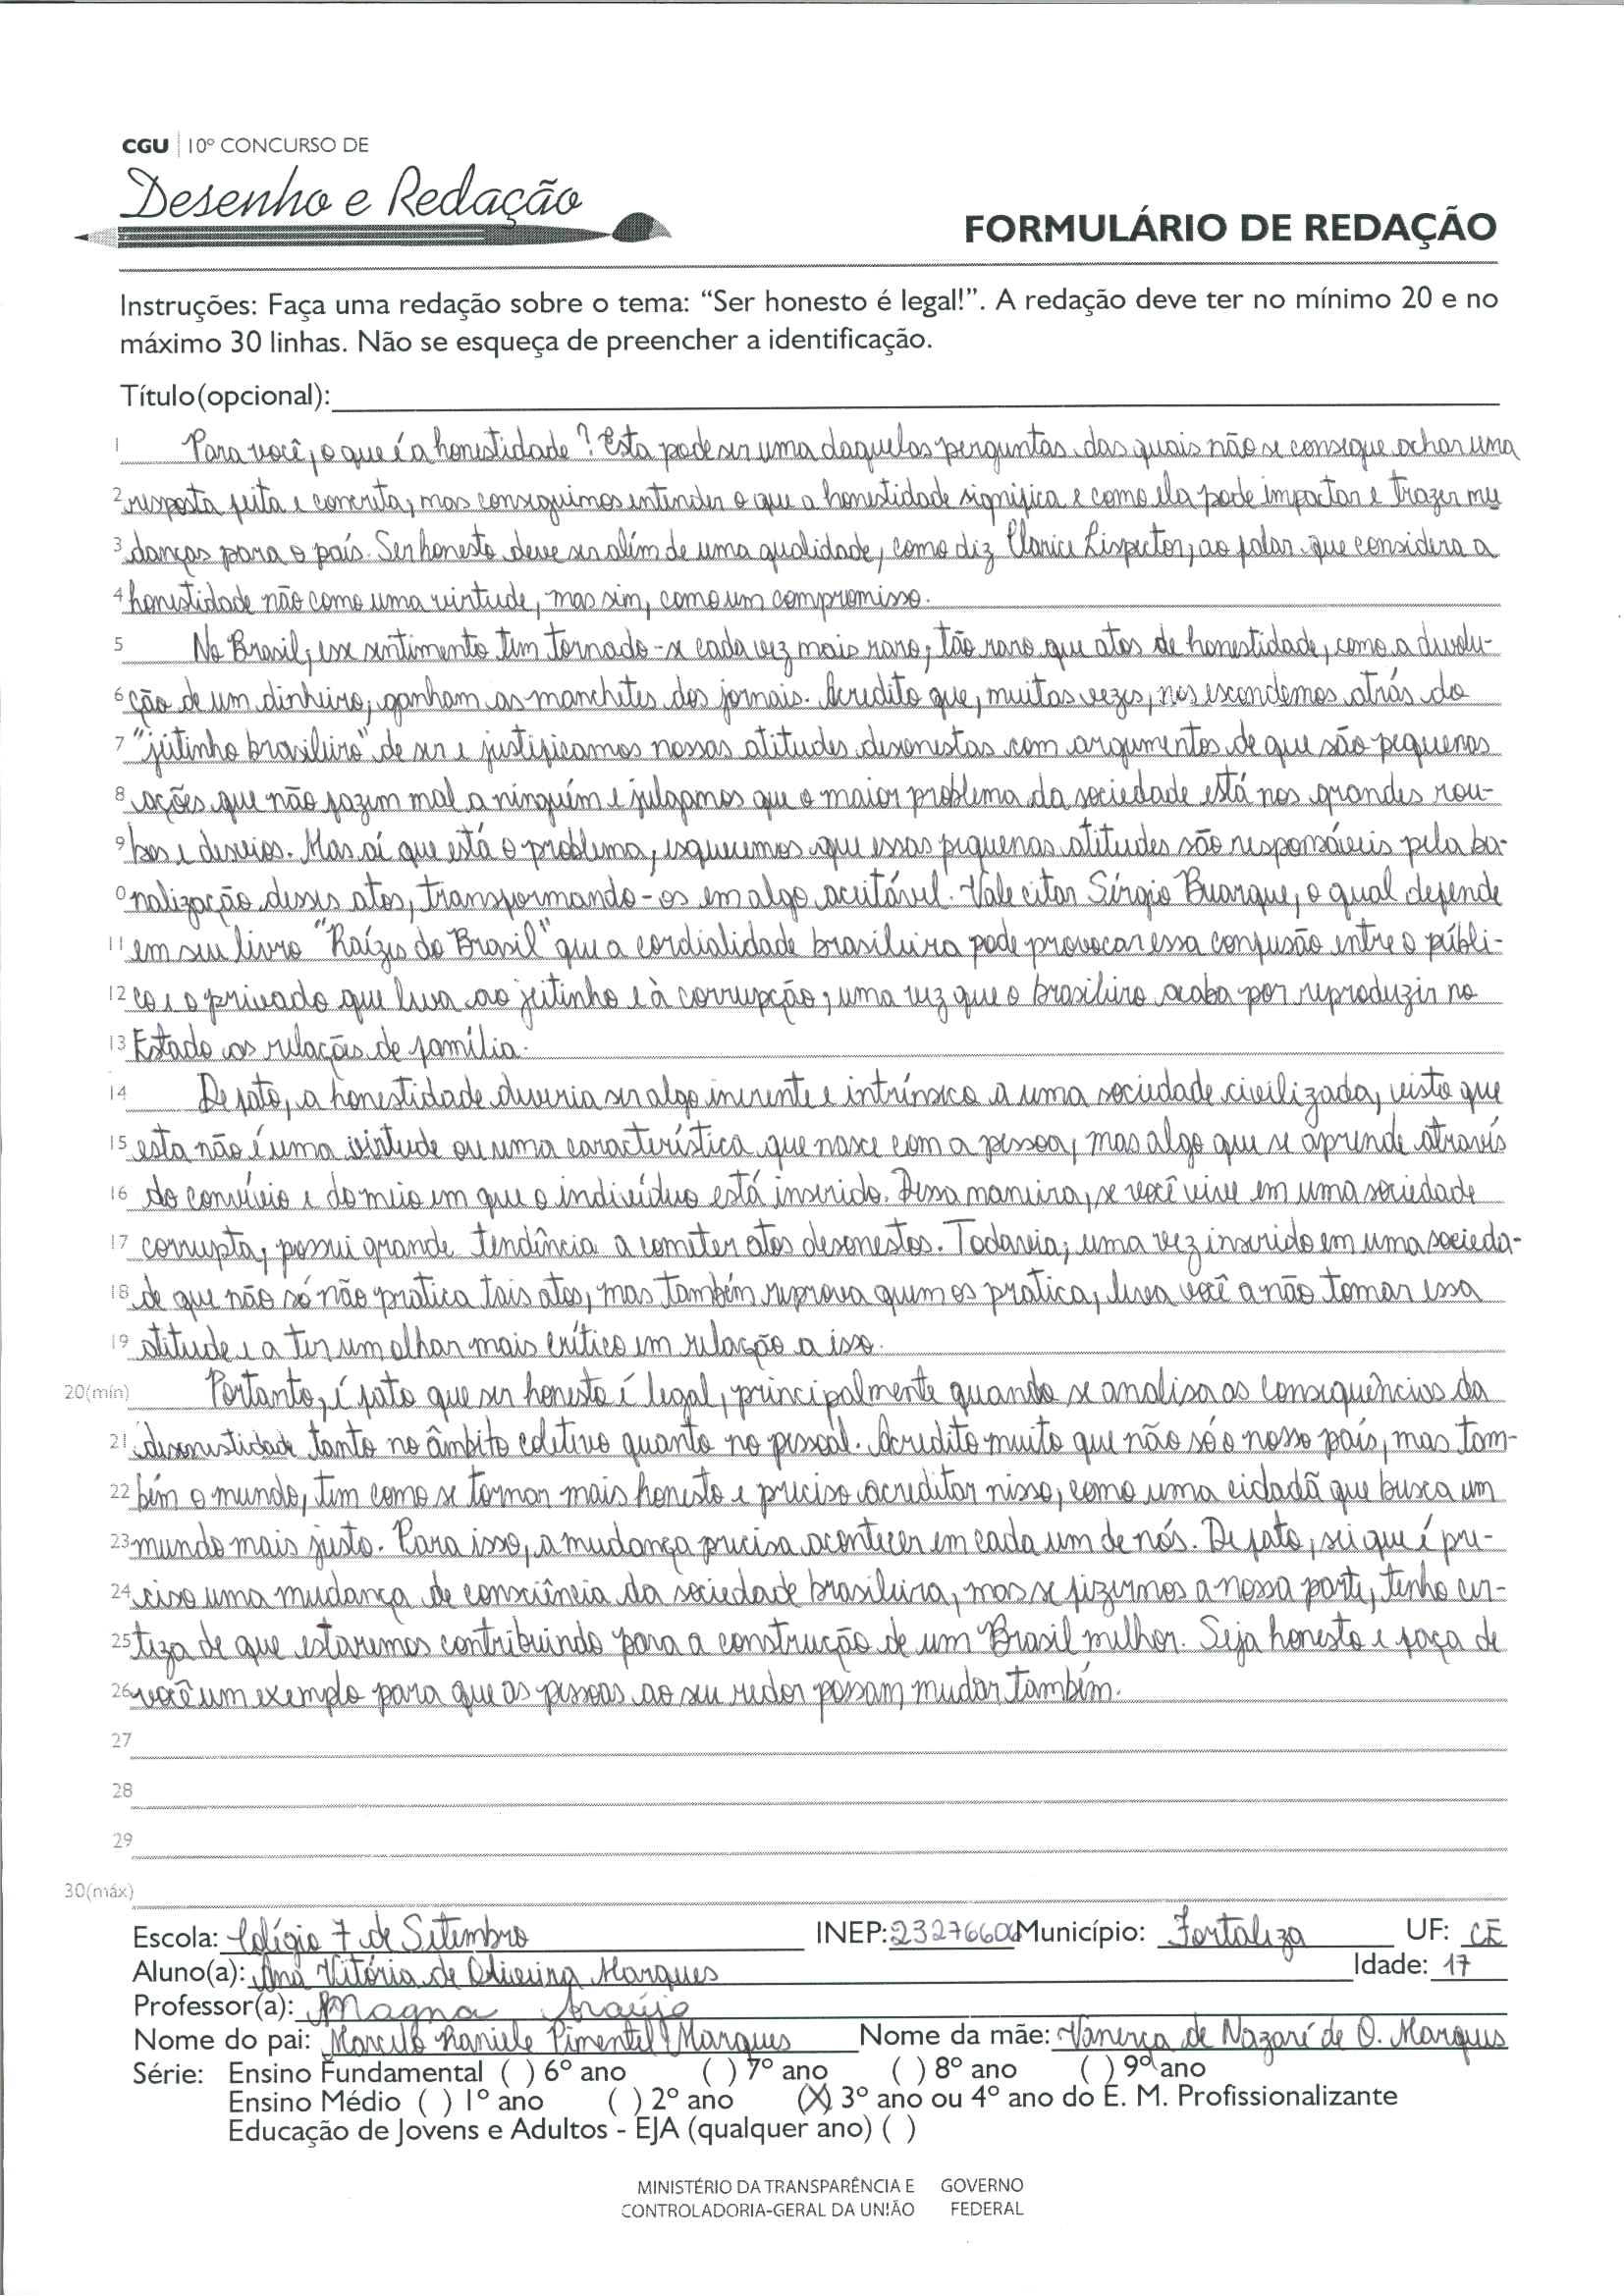 CGU | 10º CONCURSO DE
Desenho e Redação
FORMULÁRIO DE REDAÇÃO
Instruções: Faça uma redação sobre o tema: “Ser honesto é legal!”. A redação deve ter no mínimo 20 e no
máximo 30 linhas. Não se esqueça de preencher a identificação.
Título(opcional):
1 Para você, o que é a honestidade? Esta pode ser uma daquelas perguntas das quais não se consegue achar uma
2 resposta feita e concreta, mas conseguimos entender o que a honestidade significa e como ela pode impactar e trazer mu
3 danças para o país. Ser honesto deve ser além de uma qualidade, como diz Clarice Lispector, ao falar que considera a
4 honestidade não como uma virtude, mas sim, como um compromisso.
5 No Brasil, esse sentimento tem tornado-se cada vez mais raro, tão raro que atos de honestidade, como a devolu-
6 ção de um dinheiro, ganham as manchetes dos jornais. Acredito que, muitas vezes, nos escondemos atrás do
7 "jeitinho brasileiro" de ser e justificamos nossas atitudes desonestas com argumentos de que são pequenas
8 ações que não fazem mal a ninguém e julgamos que o maior problema da sociedade está nos grandes rou-
9 bos e desvios. Mas aí que está o problema, esquecemos que essas pequenas atitudes são responsáveis pela ba-
0 nalização desses atos, transformando-os em algo aceitável. Vale citar Sérgio Buarque, o qual defende
11 em seu livro "Raízes do Brasil" que a cordialidade brasileira pode provocar essa confusão entre o públi-
12 co e o privado que leva ao jeitinho e à corrupção, uma vez que o brasileiro acaba por reproduzir no
13 Estado as relações de família.
14 De fato, a honestidade deveria ser algo inerente e intrínseco a uma sociedade civilizada, visto que
15 esta não é uma virtude ou uma característica que nasce com a pessoa, mas algo que se aprende através
16 do convívio e do meio em que o indivíduo está inserido. Dessa maneira, se você vive em uma sociedade
17 corrupta, possui grande tendência a cometer atos desonestos. Todavia, uma vez inserido em uma socieda-
18 de que não só não pratica tais atos, mas também reprova quem os pratica, leva você a não tomar essa
19 atitude e a ter um olhar mais crítico em relação a isso.
20(mín) Portanto, é fato que ser honesto é legal, principalmente quando se analisa as consequências da
21 desonestidade tanto no âmbito coletivo quanto no pessoal. Acredito muito que não só o nosso país, mas tam-
22 bém o mundo, tem como se tornar mais honesto e preciso acreditar nisso, como uma cidadã que busca um
23 mundo mais justo. Para isso, a mudança precisa acontecer em cada um de nós. De fato, sei que é pre-
24 ciso uma mudança de consciência da sociedade brasileira, mas se fizermos a nossa parte, tenho cer-
25 teza de que estaremos contribuindo para a construção de um Brasil melhor. Seja honesto e faça de
26 você um exemplo para que as pessoas ao seu redor possam mudar também.
27
28
29
30(máx)
Escola: Colégio 7 de Setembro INEP: 23276606 Município: Fortaleza UF: CE
Aluno(a): Ana Vitória de Oliveira Marques Idade: 17
Professor(a): Magna Araújo
Nome do pai: Marcelo Raniele Pimentel Marques Nome da mãe: de Nazaré de O. Marques
Série: Ensino Fundamental ( ) 6º ano ( ) 7º ano ( ) 8º ano ( ) 9º ano
Ensino Médio ( ) 1º ano ( ) 2º ano (X) 3º ano ou 4º ano do E. M. Profissionalizante
Educação de Jovens e Adultos - EJA (qualquer ano) ( )
MINISTÉRIO DA TRANSPARÊNCIA E GOVERNO
CONTROLADORIA-GERAL DA UNIÃO FEDERAL